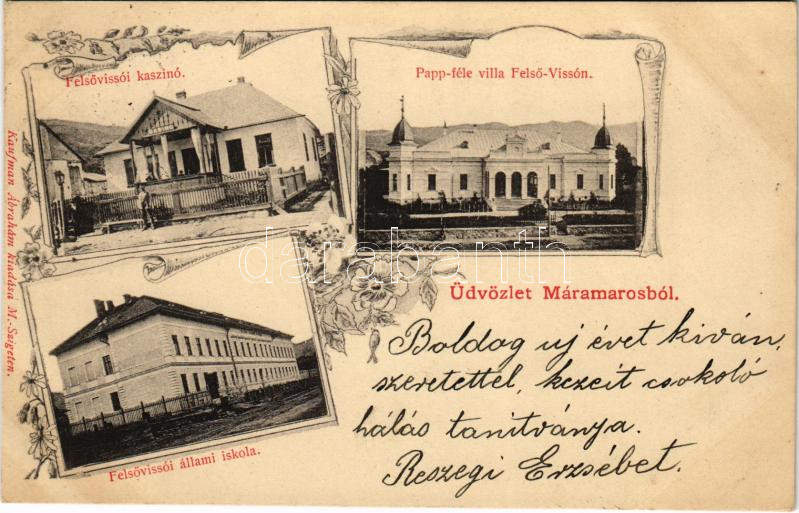 Felsővissói kaszinó.
Papp-féle villa Felső-Vissón.
Kaufman Ábrahám kiadása M.-Szigeten.
darabanth.com
Üdvözlet Máramarosból.
Boldog uj évet kiván,
szeretettel, kezeit csokoló
hálás tanitványa.
Reszegi Erzsébet.
Felsővissói állami iskola.